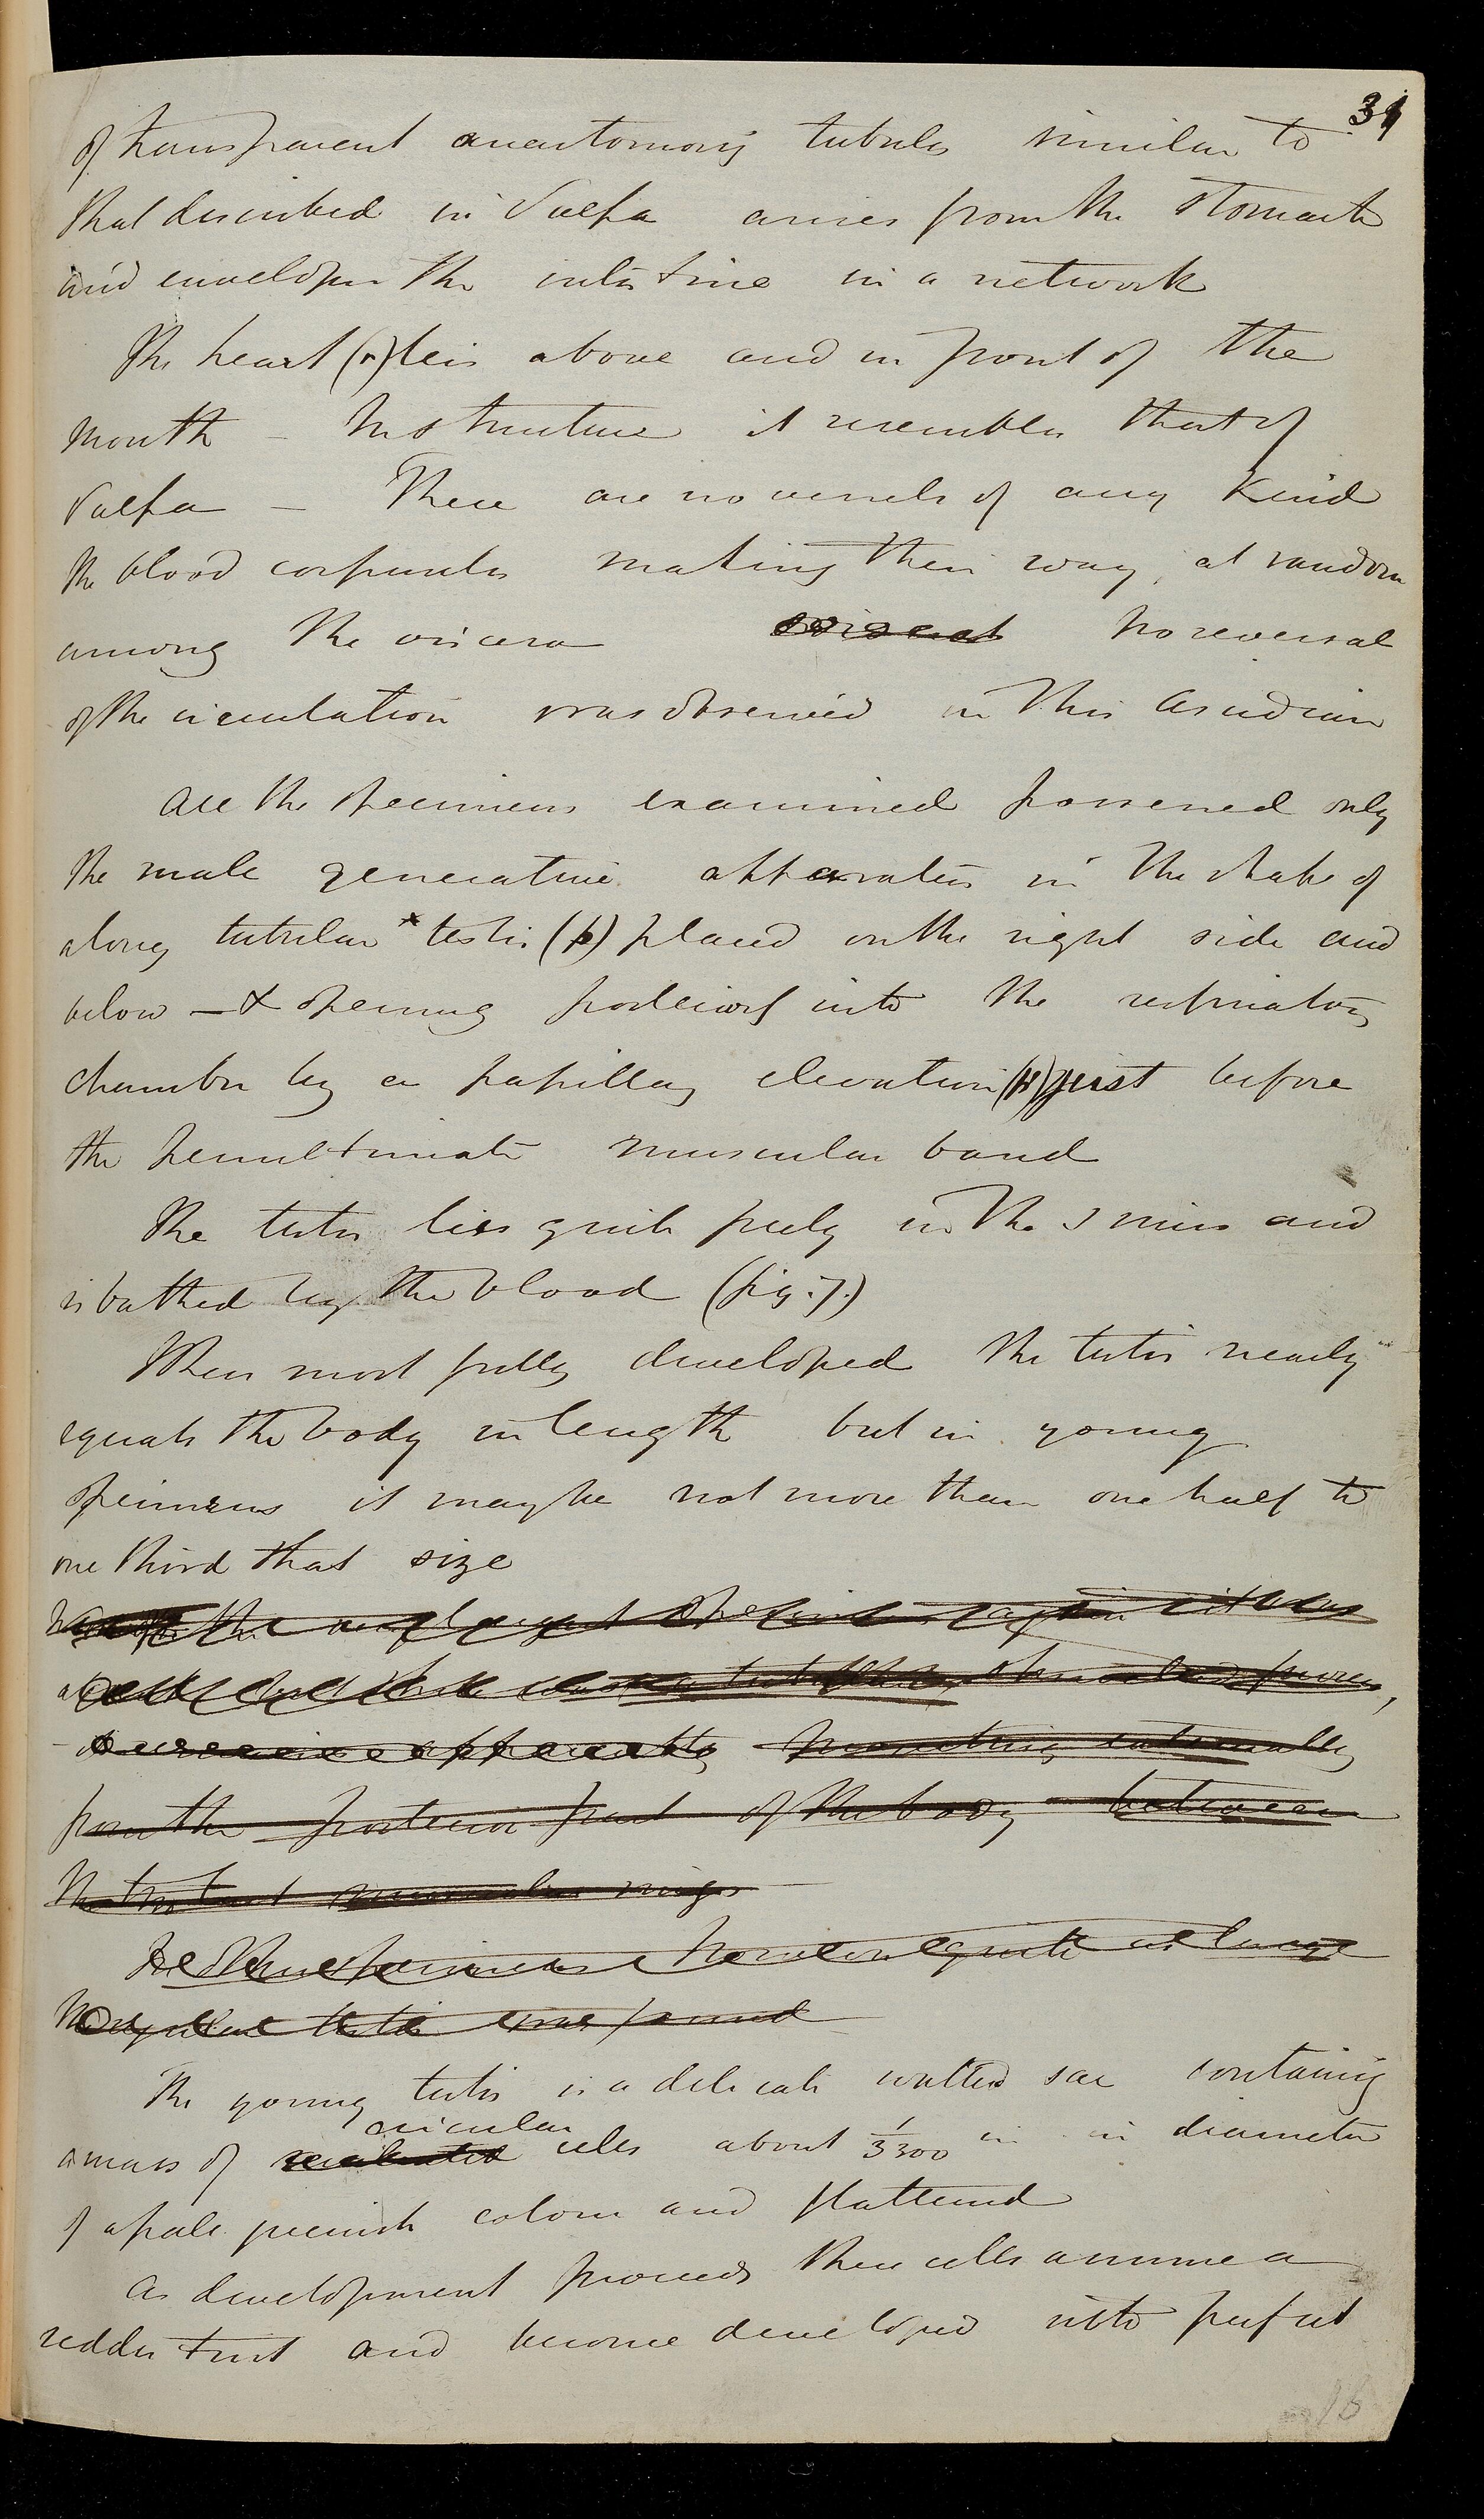 34
of transparent anastomosing tubules similar to
that described in Salpa arises from the stomach
and envelopes the intestine in a network
The heart (r) lies above and in front of the
mouth – In structure it resembles that of
Salpa – There are no vessels of any kind
the blood corpuscles making their way, at random
among the viscera no reversal
of the circulation was observed in this Ascidian
All the specimens examined possessed only
the male generative apparatus in the shape of
a long tubular * testis (p) placed on the right side and
below – & opening posteriorly into the respiratory
chamber by a papillary elevation (p') just before
the penultimate muscular band
The testis lies quite freely in the sinus and
is bathed by the blood (fig. 7.)
When most fully developed the testis nearly
equals the body in length but in young
specimens it may be not more than one half to
one third that size
apparently internally
from the posterior part of the body between
the two last muscular rings
specimens however quite as large
testis was found
The young testis is a delicate walled sac containing
a mass of circular cells about 1/3300 in in diameter
of a pale greenish colour and flattened
As development proceeds these cells assume a
redder tint and become developed into perfect
16